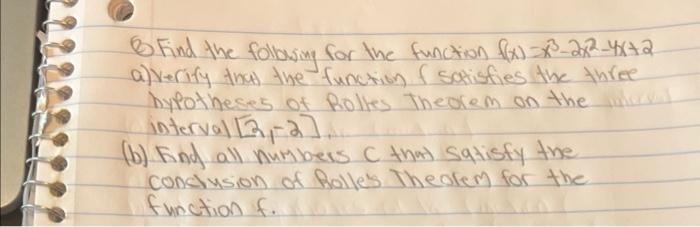 ⑧ Find the following for the function f(x)=x³-2x²-4x+2
a) Verify that the function f satisfies the three
hypotheses of Rolles Theorem on the
interval [2,-2].
(b) Find all numbers C that satisfy the
conclusion of Rolle's Theorem for the
function f.